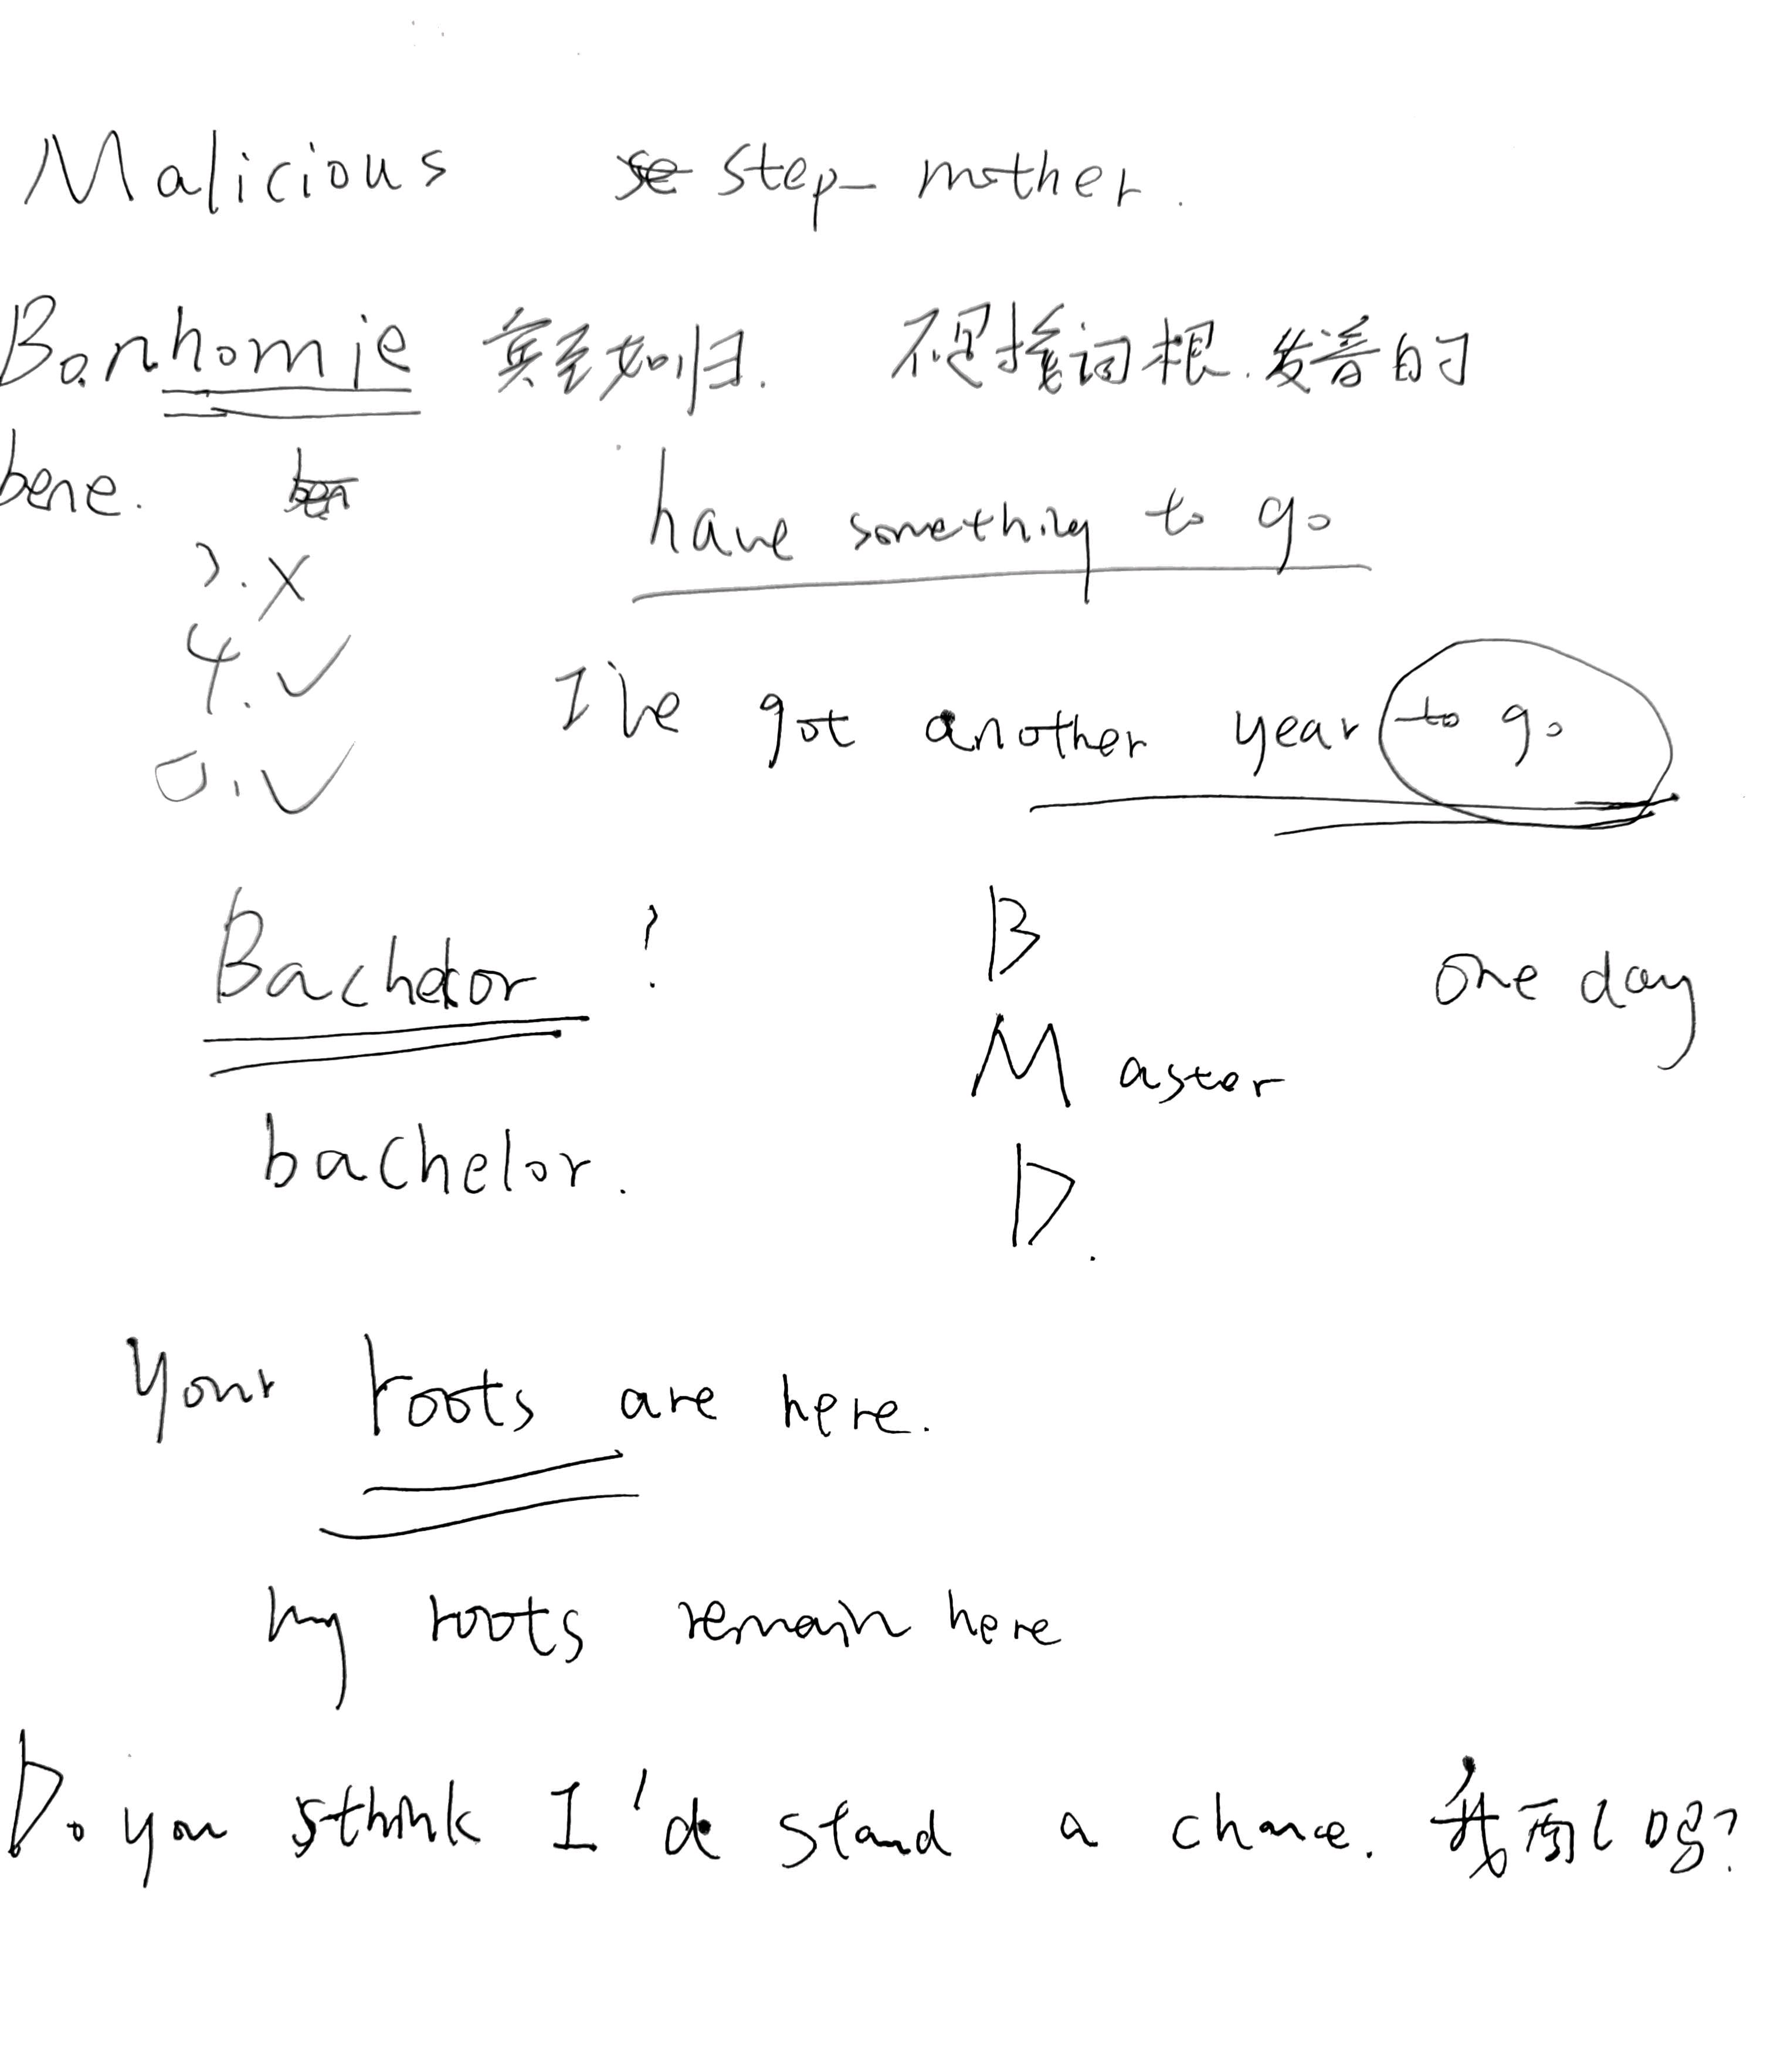 Malicious step-mother.
Bonhomie 宾至如归. 硬搂词根.发音的
bene.
have something to go
3. X
4. ✓
5. ✓
I've got another year to go
Bachelor ? B one day
Master
bachelor. D.
Your roots are here.
my roots remain here
Do you think I'd stand a chance. 我可以吗?